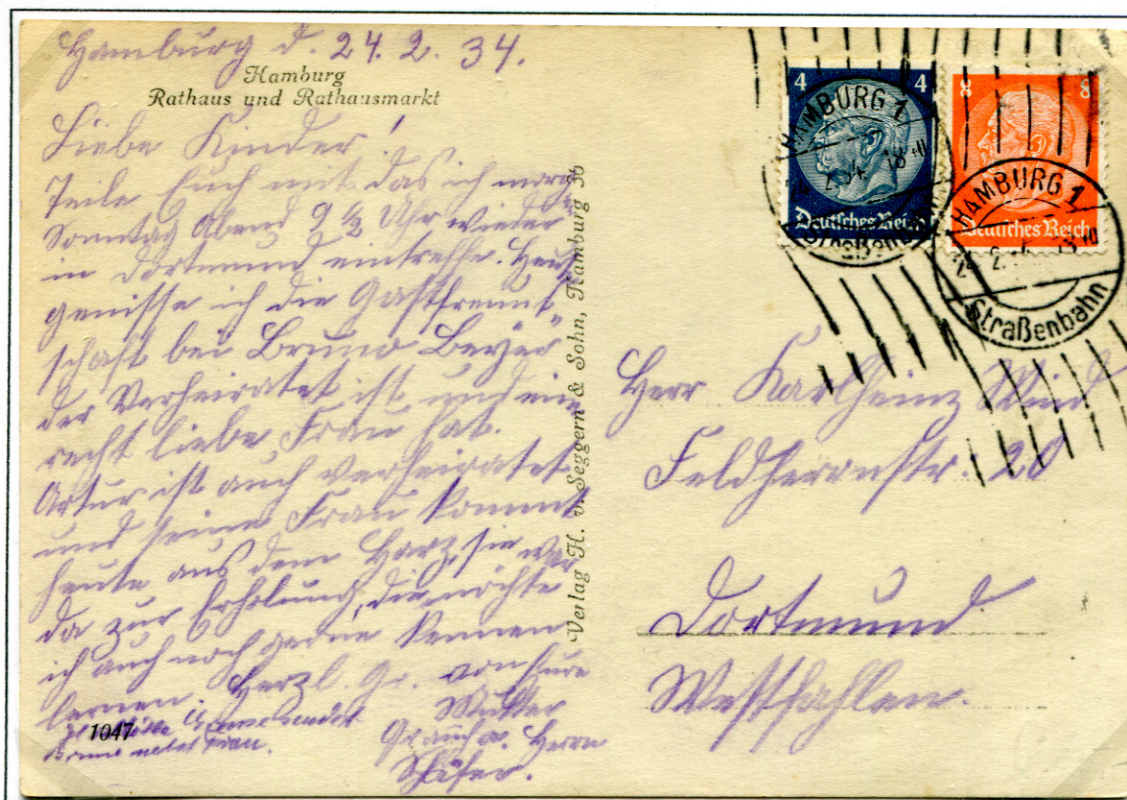 Hamburg d. 24. 2. 34.
Hamburg
Rathaus und Rathausmarkt
Liebe Kinder!
Teile Euch mit das ich morg.
Sonntag Abend 9 ½ Uhr wieder
in Dortmund eintreffe. Heute
genisse ich die Gastfreund-
schaft bei Bruno Beyer
der Verheiratet ist und eine
recht liebe Frau hat.
Artur ist auch verheiratet
und seine Frau kommt
heute aus dem Harz, sie war
da zur Erholung, die möchte
ich auch noch gerne kennen
lernen. Herzl. Gr. von Eure
Mutter
Gr. auch a. Herrn
Schäfer.
Bruno nebst Frau.
1047
Verlag H. v. Seggern & Sohn, Hamburg 36
4 4
Deutsches Reich
8 8
Deutsches Reich
HAMBURG 1
Straßenbahn
HAMBURG 1
Straßenbahn
Herr Karlheinz Wind
Feldherrnstr. 20
Dortmund
Westfahlen.